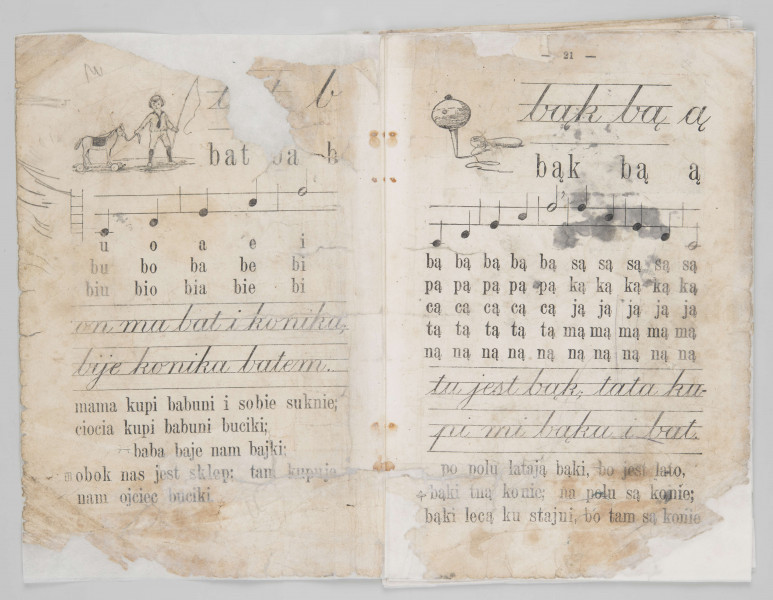 b
bat ba b
u o a e i
bu bo ba be bi
biu bio bia bie bi
on ma bat i konika,
bije konika batem.
mama kupi babuni i sobie suknie;
ciocia kupi babuni buciki;
baba baje nam bajki;
obok nas jest sklep; tam kupuje
nam ojciec buciki.
— 21 —
bąk bą ą
bąk bą ą
bą bą bą bą bą są są są są są
pą pą pą pą pą ką ką ką ką ką
cą cą cą cą cą ją ją ją ją ją
tą tą tą tą tą mą mą mą mą mą
ną ną ną ną ną ną ną ną ną ną
tu jest bąk, tata ku-
pi mi bąka i bat.
po polu latają bąki, bo jest lato,
bąki tną konie; na polu są konie;
bąki lecą ku stajni, bo tam są konie